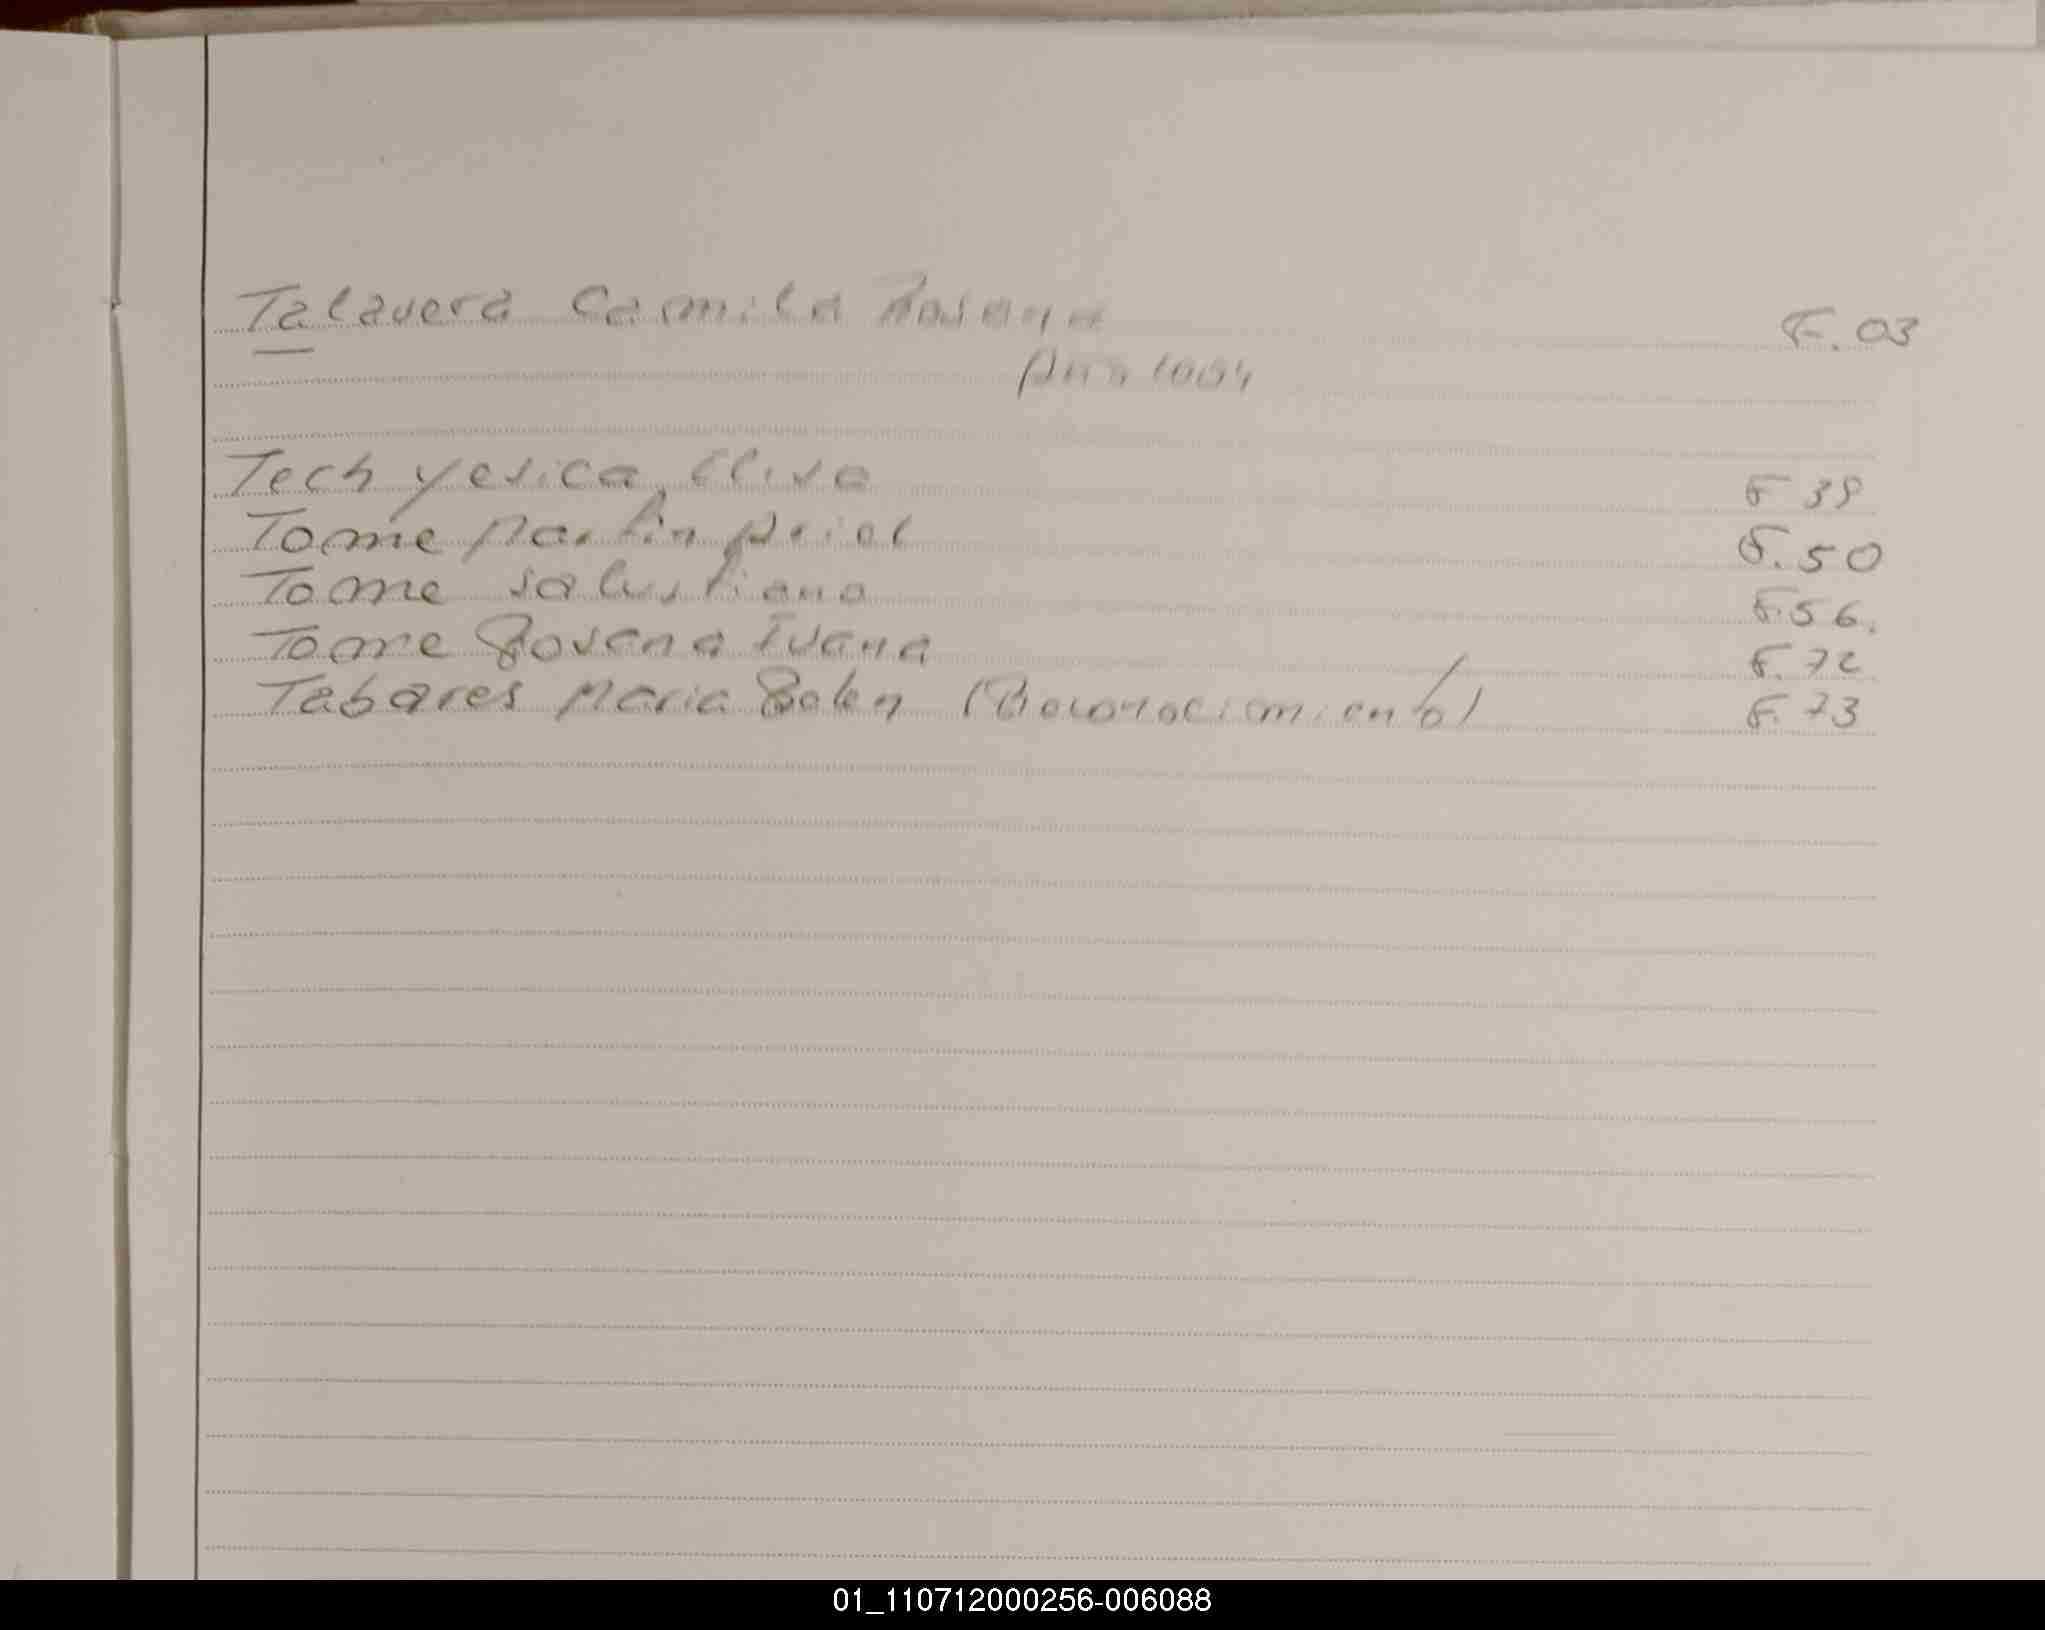 Talavera Camila Rosana F. 03
Año
Tech Yesica Elisa F 39
Tome Martin Ariel F. 50
Tome Salustiano F. 56.
Tome Rosana Ivana F. 72
Tabares Maria Belen (Reconocimiento) F. 73
01_110712000256-006088